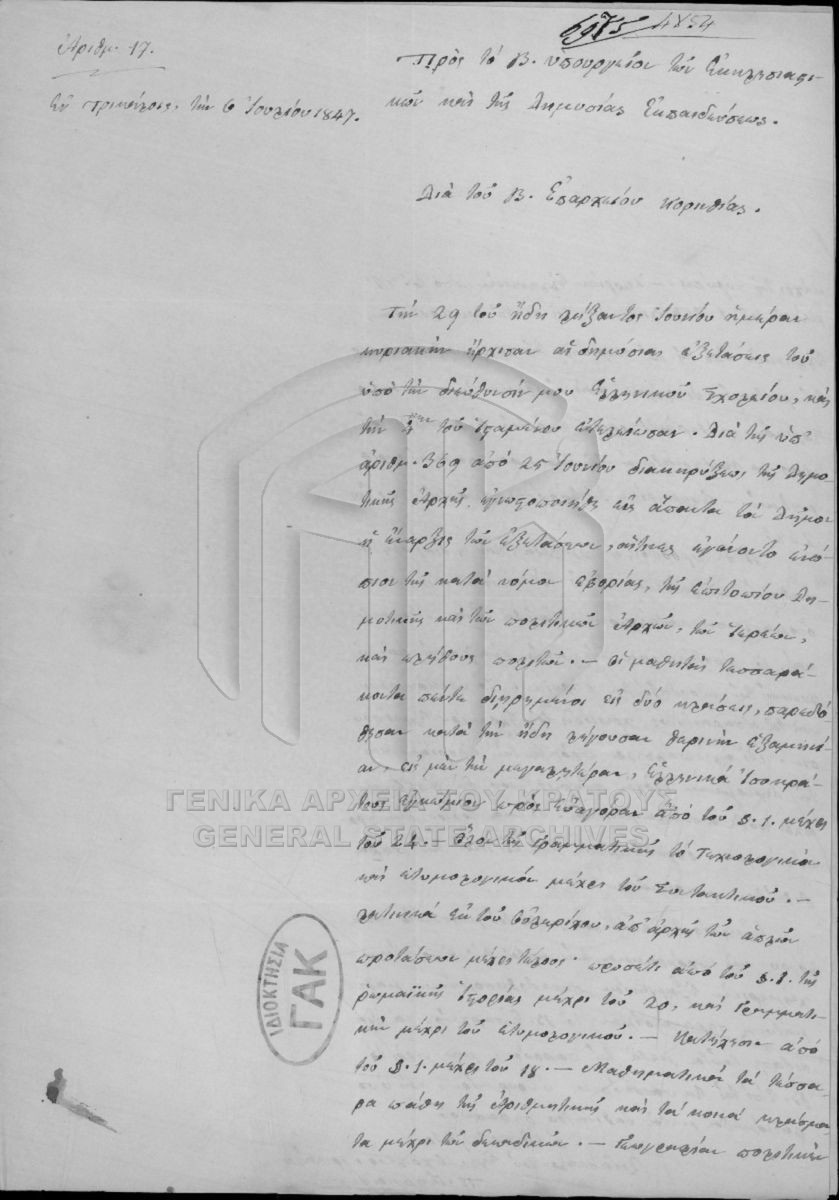 6975/4854
Ἀριθμ. 17.
Πρὸς τὸ Β. ὑπουργεῖον τῶν Ἐκκλησιαστι-
κῶν καὶ τῆς Δημοσίας Ἐκπαιδεύσεως.
Ἐν Τρικκάλοις, τὴν 6 Ἰουλίου 1847.
Διὰ τοῦ Β. Ἐπαρχείου Κορινθίας.
Τὴν 29 τοῦ ἤδη λήξαντος Ἰουνίου ἡμέραν
κυριακὴν ἤρχισαν αἱ δημόσιαι ἐξετάσεις τοῦ
ὑπὸ τὴν διεύθυνσίν μου Ἑλληνικοῦ Σχολείου, καὶ
τὴν τοῦ ἱσταμένου ἐτελείωσαν. Διὰ τῆς ὑπ'
ἀριθμ. 369 ἀπὸ 25 Ἰουνίου διακηρύξεως τῆς Δημο-
τικῆς Ἀρχῆς ἐγνωστοποιήθη εἰς ἅπαντα τὸν Δῆμον
ἡ ἔναρξις τῶν ἐξετάσεων, αἵτινες ἐγένοντο ἐνώ-
πιον τῆς κατὰ νόμον ἐφορίας, τῆς ἐπιτοπίου Δη-
μοτικῆς καὶ τῶν πολιτικῶν Ἀρχῶν, τῶν ἱερέων,
καὶ πλήθους πολιτῶν. - Οἱ μαθηταὶ τεσσαρά-
κοντα πέντε διῃρημένοι εἰς δύο κλάσεις, παρεδό-
θησαν κατὰ τὴν ἤδη λήγουσαν θερινὴν ἐξαμηνί-
αν, εἰς μὲν τὴν μεγαλητέραν, Ἑλληνικὰ Ἰσοκρά-
τους ἐγκώμιον πρὸς Εὐαγόραν ἀπὸ τοῦ §. 1. μέχρι
τοῦ 24. - Ὅλον τῆς Γραμματικῆς τὸ Τεχνολογικὸν
καὶ ἐτυμολογικὸν μέχρι τοῦ Συντακτικοῦ. -
Λατινικὰ ἐκ τοῦ Οὐλερίχου, ἀπ' ἀρχῆς τῶν ἁπλῶν
προτάσεων μέχρι τέλους· προσέτι ἀπὸ τοῦ §. 1. τῆς
ῥωμαϊκῆς ἱστορίας μέχρι τοῦ 20, καὶ Γραμματι-
κὴν μέχρι τοῦ ἐτυμολογικοῦ. - Κατήχησιν ἀπὸ
τοῦ §. 1. μέχρι τοῦ 18. - Μαθηματικὰ τὰ τέσσα-
ρα πάθη τῆς Ἀριθμητικῆς καὶ τὰ κοινὰ κλάσμα-
τα μέχρι τῶν δεκαδικῶν. - Γεωγραφίαν πολιτικὴν
ΓΕΝΙΚΑ ΑΡΧΕΙΑ ΤΟΥ ΚΡΑΤΟΥΣ
GENERAL STATE ARCHIVES
ΙΔΙΟΚΤΗΣΙΑ
ΓΑΚ